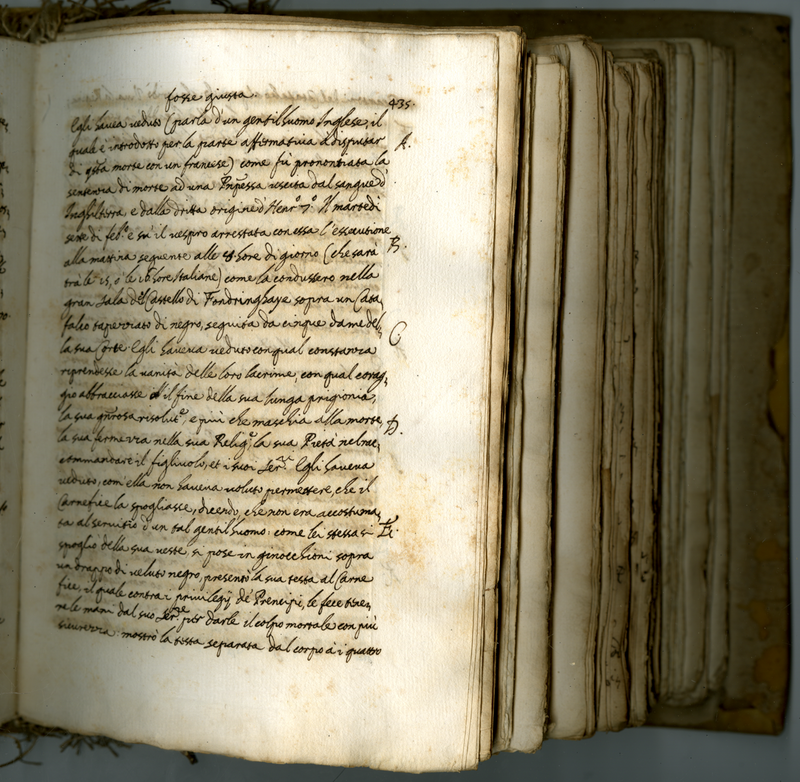 fosse giusta.
435.
Egli havea veduto (parla d'un gentilhuomo Inglese, il
quale è introdotto per la parte affirmativa à disputar
A.
di qsta morte con un francese) come fù pronontiata la
sentenza di morte ad una Prnpessa uscita dal sangue d'
Inghilterra, e dalla dritta origine d'Henro 7o. Il martedì
sette di febo è sù il vespro arrestata con essa l'essecutione
B.
alla mattina seguente alle 8. hore di giorno (che sarà
trà le 15, ò le 16 hore Italiane) come la condussero nella
gran sala del Castello di Fondringhaye sopra un Cata,
falco tapezzato di negro, seguita da cinque dame del,
C
la sua Corte. Egli haveva veduto con qual constanza
riprendesse la vanità delle loro lacrime, con qual corag,
gio abbracciasse il fine della sua lunga prigionia,
la sua gnrosa risoluto, e più che maschia alla morte,
D.
la sua fermezza nella sua Religo, la sua Pietà nel rac,
commandare il figliuolo, et i suoi Serri. Egli haveva
veduto, com ella non haveva voluto permettere, che il
Carnefice la spogliasse, dicendo, che non era accostuma,
ta al servitio d'un tal gentilhuomo, come lei stessa si
E.
spogliò della sua veste, si pose in ginocchioni sopra
un drappo di veluto negro, presentò la sua testa al Carne
fice, il quale contra i privilegij de' Prencipi, le fece tene,
re le mani dal suo Serre per darle il colpo mortale con più
sicurezza: mostrò la testa separata dal corpo à i quattro